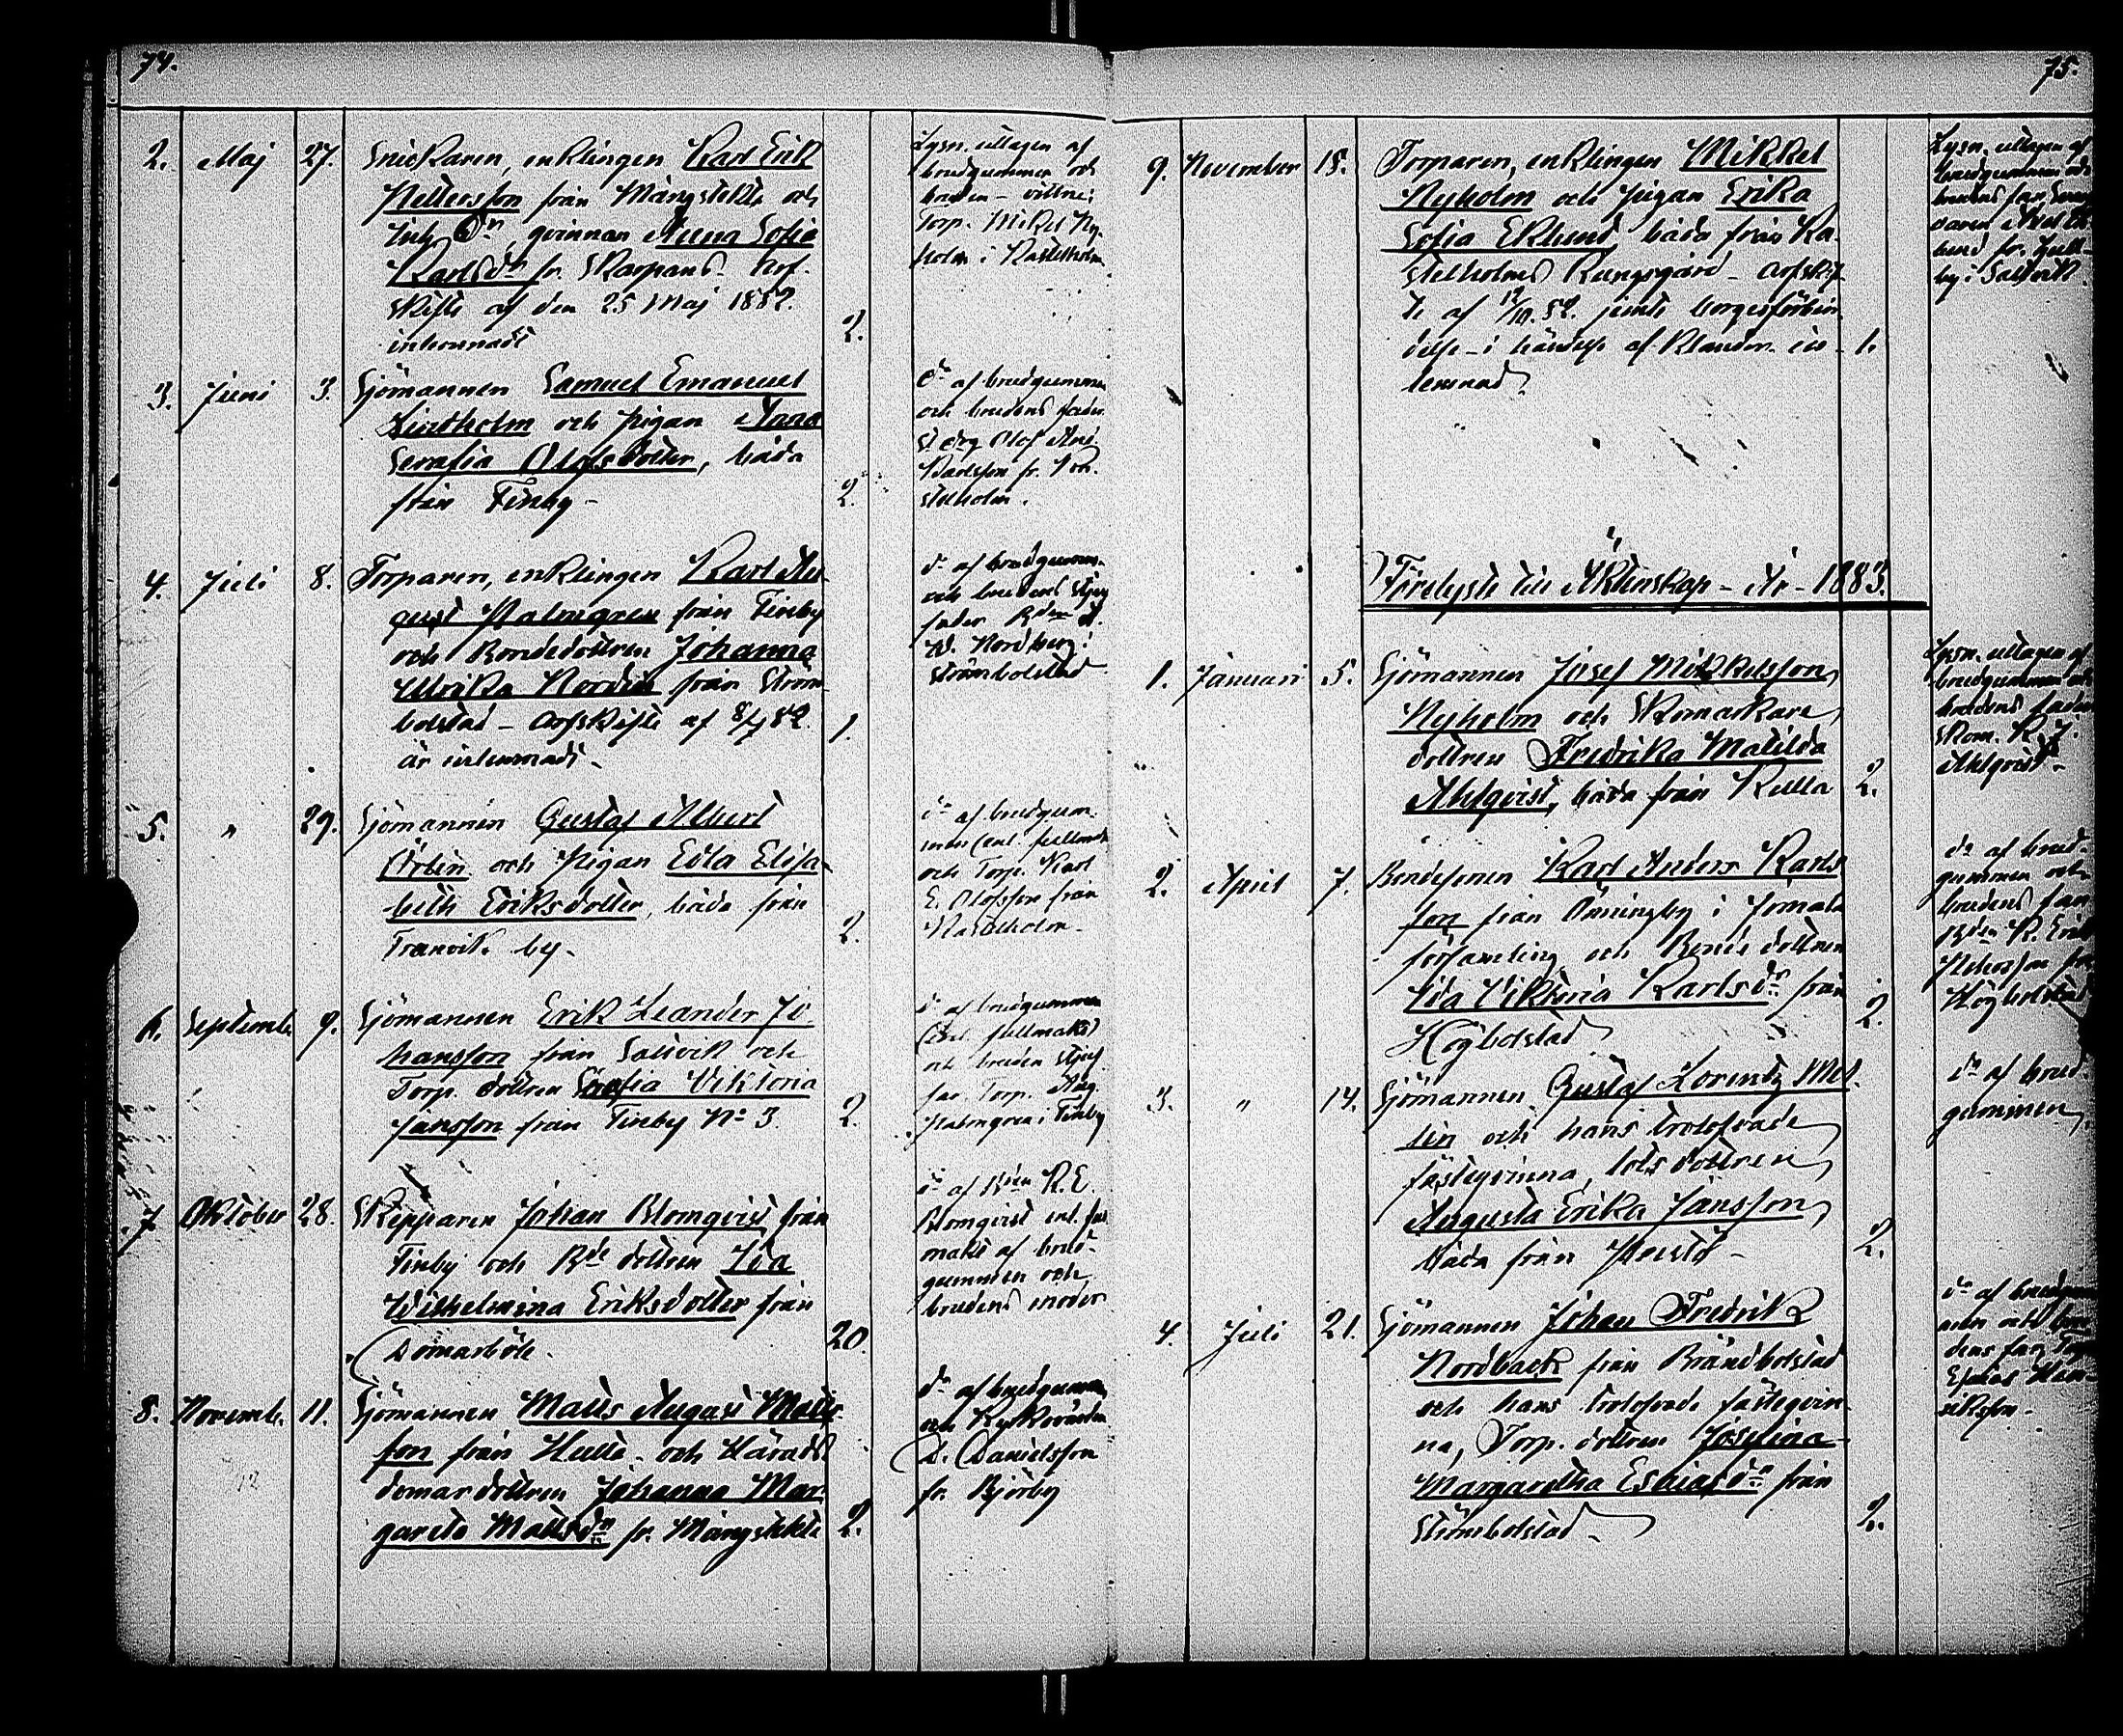 74.
2. Maj 27. Snickaren, enklingen Karl Erik
Pettersson från Mångstekta och
Inh. Dr, qvinnan Anna Sofia
Karlsdr fr. Skarpans. Arf-
skifte af den 25 Maj 1882.
inlemnadt 2.
Lysn. uttagen af
brudgummen och
bruden - vittne:
Torp. Mikel Ny-
holm i Kastelholm
3. Juni 3. Sjömannen Samuel Emanuel
Lindholm och pigan Anna
Serafia Olofsdotter, båda
från Finby - 2.
do af brudgummen
och brudens fader
Olof And.
Karlsson fr. Ka-
stelholm.
4. Juli 8. Torparen, enklingen Karl Au-
gust Palmgren från Finby
och Bondedottren Johanna
Ulrika Nordin från Ström-
bolstad - Arfskifte af 8/7 82. 1.
är inlemnadt -
do af brudgumm.
och brudens styf-
fader Bden A.
W. Nordberg i
Strömbolstad
5. " 29. Sjömannen Gustaf Albert
Örbin och Pigan Edla Elisa-
beth Eriksdotter, båda från
Tranvik by. 2.
do af brudgum-
men (enl. fullmakt
och Torp. Karl
E. Olofsson från
Kastelholm -
6. Septemb. 9. Sjömannen Erik Leander Jo-
hansson från Saltvik och
Torp. dottren Serafia Viktoria
Jansson från Finby No 3. 2.
do af brudgummen
(enl. fullmakt)
och bruden styf-
far Torp. Aug.
Palmgren i Finby
7. Oktober 28. Skepparen Johan Blomqvist från
Finby och Bde dottren Ida
Wilhelmina Eriksdotter från
Domarböle. 20.
do af Bden K. E.
Blomqvist enl. full
makt af brud-
gummen och
brudens moder
8. Novemb. 11. Sjömannen Matts August Matts-
son från Hulta - och Härads-
domardottren Johanna Mar-
gareta Mattsdr fr. Mångstekta 2.
do af brudgummen
och Kyrkovärden
D. Danielsson
fr. Bjerby
75.
9. November 15. Torparen, enklingen Mikkel
Nyholm och pigan Erika
Sofia Eklund, båda från Ka-
stelholms Kungsgård - arfskif-
te af 12/10. 82. jemte borgesförbin-
delse - i händelse af klander - in- 1.
lemnad
Lysn. uttagen af
brudgummen och
brudens far
lund fr.
by i Saltvik.
Förelyste till Äktenskap - År - 1883.
1. Januari 5. Sjömannen Josef Mikkelsson
Nyholm och Skomakare
dottren Fredrika Matilda
Ahlqvist, båda från Kulla 2.
Lysn. uttagen af
brudgummen och
brudens fader
Skom. K. J.
Ahlqvist -
2. April 7. Bondesonen Karl Anders Karls-
son från Önningeby i Jomala
församling och Bonde dottren
Ida Viktoria Karlsdr från
Högbolstad 2.
do af brud-
gummen och
brudens far
Bden K. Erik
Nilsson fr.
Högbolstad
3. " 14. Sjömannen Gustaf Lorentz Mel-
lin och hans trolofvade
fästeqvinna, lots dottren
Augusta Erika Jansson
båda från Prestö - 2.
do af brud-
gummen
4. Juli 21. Sjömannen Johan Fredrik
Nordback från Brändbolstad
och hans trolofvade fästeqvin-
na, Torp. dottren Josefina
Margaretha Esaiasdr från
Strömbolstad - 2.
do af brudgum-
men och bru-
dens far, Torp.
Esaias Hen-
riksson -